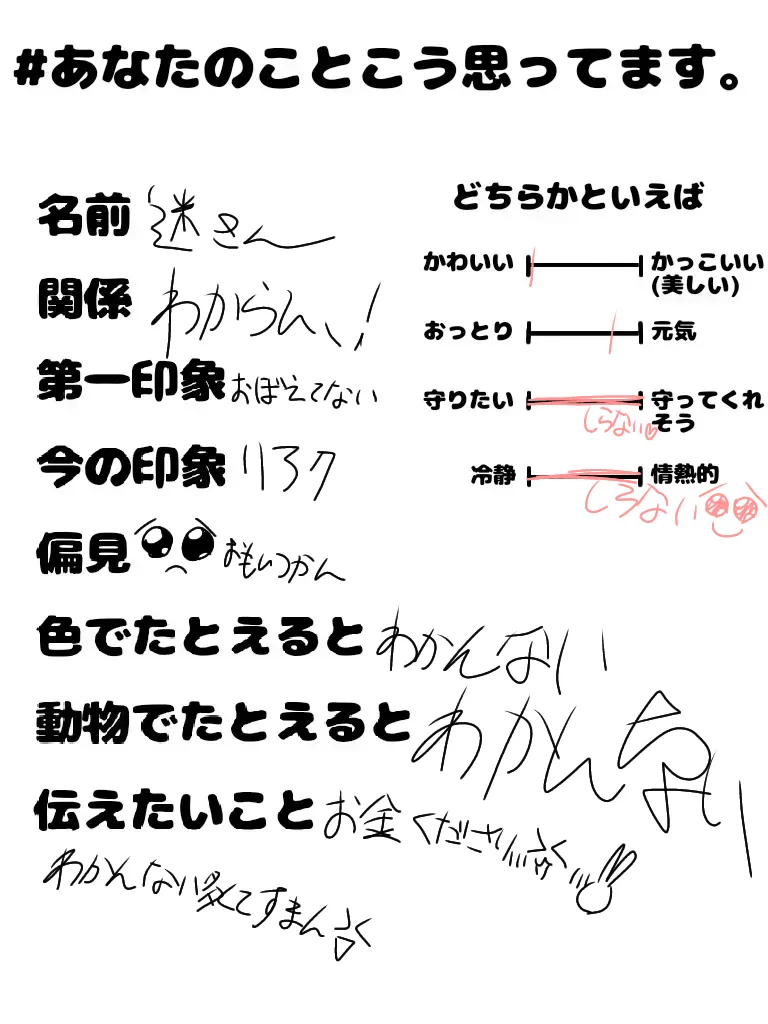 #あなたのことこう思ってます。
名前 迷さん
関係 わからん、！
第一印象 おぼえてない
今の印象 リアク
偏見 おもいつかん
色でたとえると わかんない
動物でたとえると わかんない
伝えたいこと お金ください
わかんない多くてすまん
どちらかといえば
かわいい かっこいい
(美しい)
おっとり 元気
守りたい 守ってくれ
そう
しらない♡
冷静 情熱的
しらない